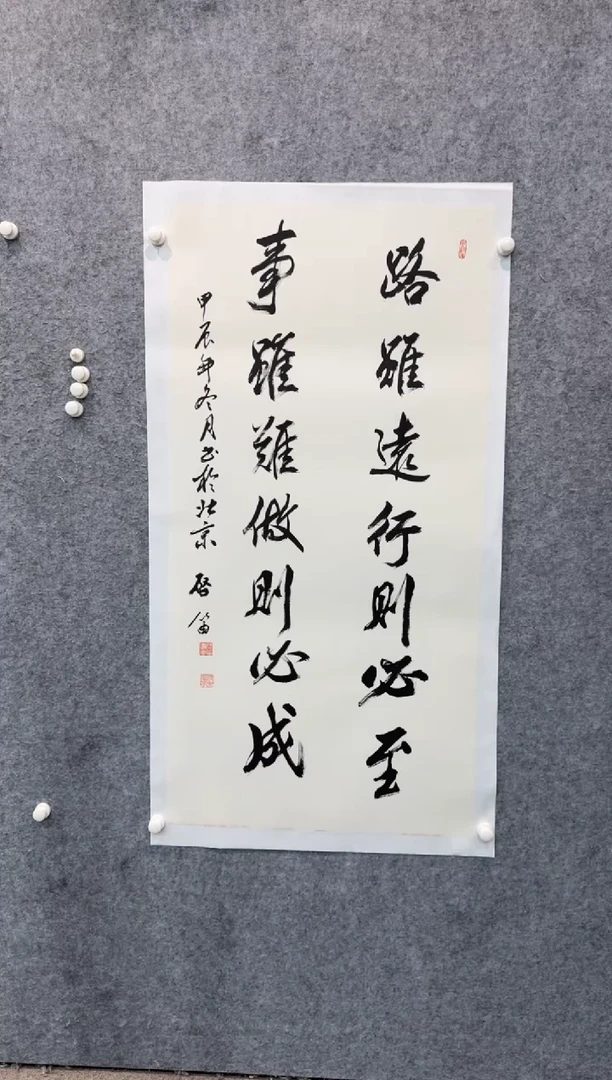 路雖遠行則必至
事雖難做則必成
甲辰年冬月书於北京 啓笛